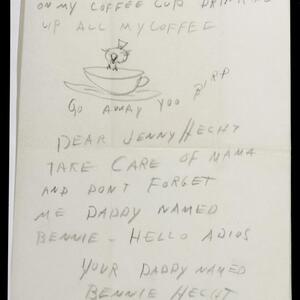 ON MY COFFEE CUP DRINKING
UP ALL MY COFFEE
GO AWAY YOO BIRD
DEAR JENNY HECHT
TAKE CARE OF MAMA
AND DONT FORGET
ME DADDY NAMED
BENNIE - HELLO ADIOS
YOUR DADDY NAMED
BENNIE HECHT